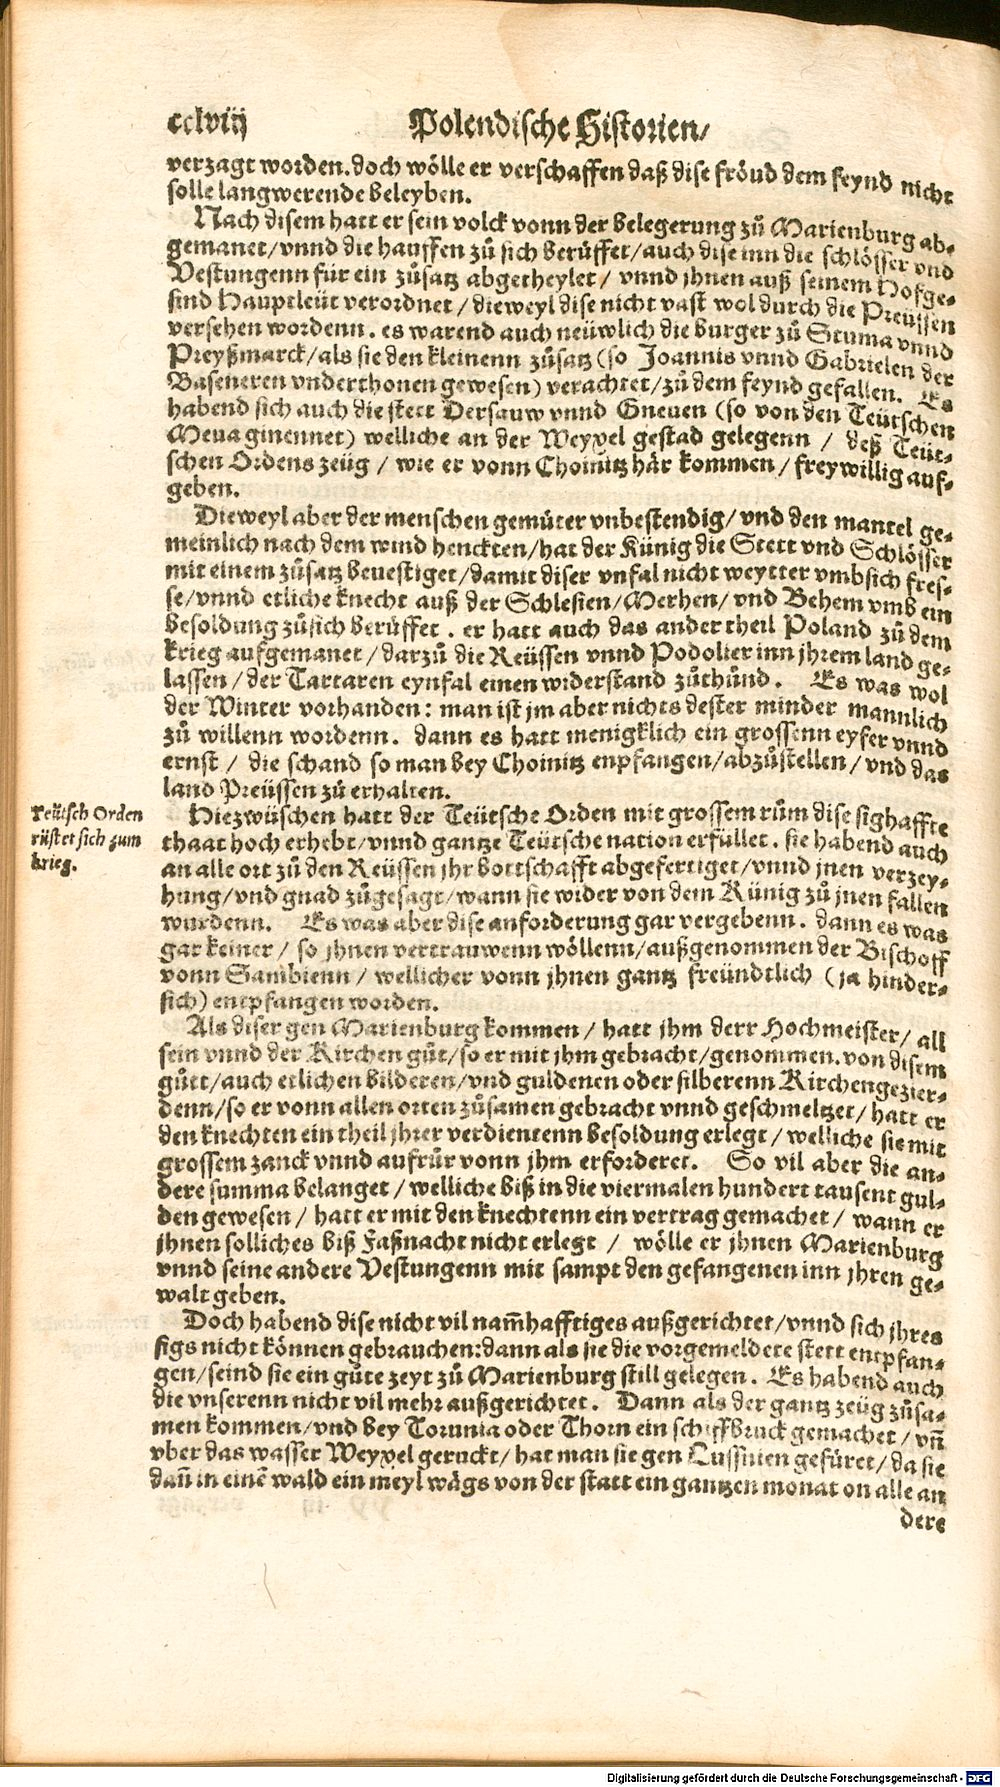 cclviij
Polendische Historien/
verzagt worden. doch wölle er verschaffen daß dise fröud dem feynd nicht
solle langwerende beleyben.
Nach disem hatt er sein volck vonn der belegerung zů Marienburg ab-
gemanet/vnnd die hauffen zů sich berüffet/auch dise inn die schlösser vnd
Vestungenn für ein zůsatz abgetheylet/ vnnd jhnen auß seinem Hofge-
sind Hauptleüt verordnet/dieweyl dise nicht vast wol durch die Preussen
versehen wordenn. es warend auch neüwlich die burger zů Stuma vnnd
Preyßmarck/als sie den kleinenn zůsatz (so Joannis vnnd Gabrielen der
Baseneren vnderthonen gewesen) verachtet/zů dem feynd gefallen. Es
habend sich auch die stett Dersauw vnnd Gneuen (so von den Teütschen
Meua ginennet) welliche an der Weyxel gestad gelegenn / deß Teüt-
schen Ordens zeüg / wie er vonn Choinitz här kommen/freywillig auf-
geben.
Dieweyl aber der menschen gemüter vnbestendig/vnd den mantel ge-
meinlich nach dem wind henckten/hat der Künig die Stett vnd Schlösser
mit einem zůsatz beuestiget/damit diser vnfal nicht weytter vmbsich fres-
se/vnnd etliche knecht auß der Schlesien/Merhen/vnd Behem vmb ein
besoldung zůsich berüffet. er hatt auch das ander theil Poland zů dem
krieg aufgemanet/darzů die Reüssen vnnd Podolier inn jhrem land ge-
lassen/der Tartaren eynfal einen widerstand zůthůnd. Es was wol
der Winter vorhanden: man ist jm aber nichts dester minder mannlich
zů willenn wordenn. dann es hatt menigklich ein grossenn eyfer vnnd
ernst / die schand so man bey Choinitz enpfangen/abzůstellen/vnd das
land Preüssen zů erhalten.
Teütsch Orden
rüstet sich zum
krieg.
Hiezwüschen hatt der Teütsche Orden mit grossem rům dise sighaffte
thaat hoch erhebt/vnnd gantze Teütsche nation erfüllet. sie habend auch
an alle ort zů den Reüssen jhr bottschafft abgefertiget/vnnd jnen verzey-
hung/vnd gnad zůgesagt/wann sie wider von dem Künig zů jnen fallen
wurdenn. Es was aber dise anforderung gar vergebenn. dann es was
gar keiner / so jhnen vertrauwenn wöllenn/außgenommen der Bischoff
vonn Sambienn / wellicher vonn jhnen gantz freündtlich (ja hinder-
sich) entpfangen worden.
Als diser gen Marienburg kommen/ hatt jhm derr Hochmeister/ all
sein vnnd der Kirchen gůt/so er mit jhm gebracht/genommen. von disem
gůtt/auch etlichen bilderen/vnd guldenen oder silberenn Kirchengezier-
denn/so er vonn allen orten zůsamen gebracht vnnd geschmeltzet/hatt er
den knechten ein theil jhrer verdientenn besoldung erlegt/welliche sie mit
grossem zanck vnnd aufrůr vonn jhm erforderet. So vil aber die an-
dere summa belanget/welliche biß in die viermalen hundert tausent gul-
den gewesen/ hatt er mit den knechtenn ein vertrag gemachet/ wann er
jhnen solliches biß Faßnacht nicht erlegt / wölle er jhnen Marienburg
vnnd seine andere Vestungenn mit sampt den gefangenen inn jhren ge-
walt geben.
Doch habend dise nicht vil nam̃hafftiges außgerichtet/vnnd sich jhres
sigs nicht können gebrauchen: dann als sie die vorgemeldete stett entpfan-
gen/seind sie ein gůte zeyt zů Marienburg still gelegen. Es habend auch
die vnserenn nicht vil mehr außgerichtet. Dann als der gantz zeüg zůsa-
men kommen/vnd bey Torunia oder Thorn ein schiffbruck gemachet/vñ
vber das wasser Weyxel geruckt/hat man sie gen Lussinien gefüret/da sie
dañ in einẽ wald ein meyl wägs von der statt ein gantzen monat on alle an
dere
Digitalisierung gefördert durch die Deutsche Forschungsgemeinschaft - DFG